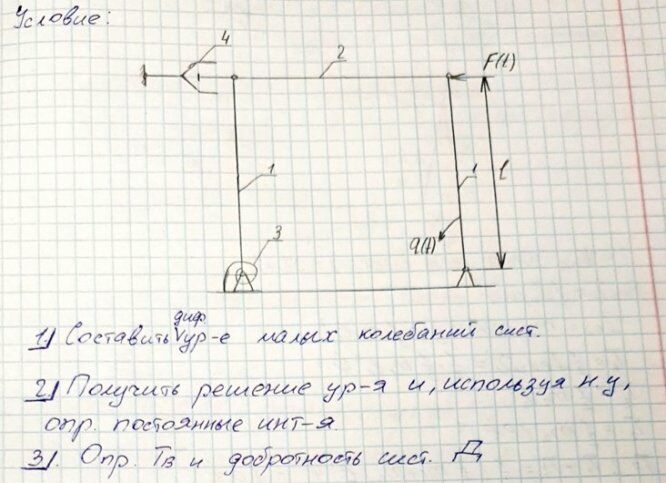 Условие:
4
2
F(t)
1
1
l
3
q(t)
диф.
1) Составить V ур-е малых колебаний сист.
2) Получить решение ур-я и, используя н.у,
опр. постоянные инт-я.
3). Опр. Тв и добротность сист. Д